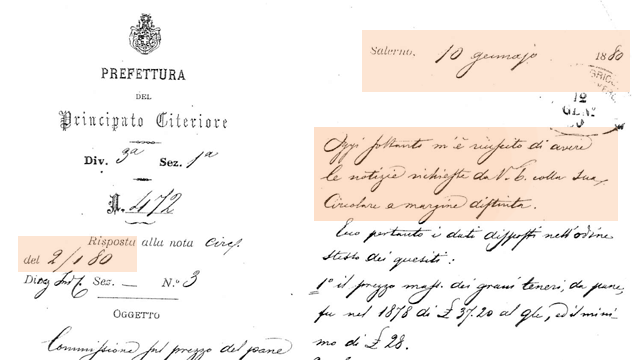 PREFETTURA
DEL
Principato Citeriore
Div. 3ª Sez. 1ª
N. 472
Risposta alla nota circ.
del 2/1 80
Sez. — N.º 3
OGGETTO
Commissione sul prezzo del pane
Salerno, 10 gennajo 1880
12
GEN
Oggi soltanto m'è riuscito di avere
le notizie richieste da V. E. colla sua
Circolare a margine distinta.
Ecco pertanto i dati disposti nell'ordine
stesso dei quesiti:
1º il prezzo mass. dei grani teneri, da pane,
fu nel 1878 di £ 37.20 al qle, ed il mini
mo di £ 28.